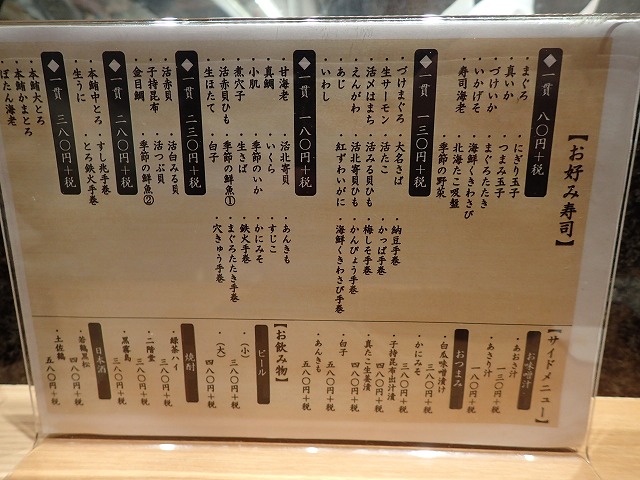 【お好み寿司】
◆一貫 八〇円+税
・まぐろ
・真いか
・づけいか
・いかげそ
・寿司海老
・にぎり玉子
・つまみ玉子
・まぐろたたき
・海鮮くきわさび
・北海たこ吸盤
・季節の野菜
◆一貫 一三〇円+税
・づけまぐろ
・生サーモン
・活〆はまち
・えんがわ
・あじ
・いわし
・大名さば
・活たこ
・活みる貝ひも
・活北寄貝ひも
・紅ずわいがに
・納豆手巻
・かっぱ手巻
・梅しそ手巻
・かんぴょう手巻
・海鮮くきわさび手巻
◆一貫 一八〇円+税
・甘海老
・真鯛
・小肌
・煮穴子
・活赤貝ひも
・生ほたて
・活北寄貝
・いくら
・季節のいか
・生さば
・季節の鮮魚①
・白子
・あんきも
・すじこ
・かにみそ
・鉄火手巻
・まぐろたたき手巻
・穴きゅう手巻
◆一貫 二三〇円+税
・活赤貝
・子持昆布
・金目鯛
・活白みる貝
・活つぶ貝
・季節の鮮魚②
◆一貫 二八〇円+税
・本鮪中とろ
・生うに
・すし兆手巻
・とろ鉄火手巻
◆一貫 三八〇円+税
・本鮪大とろ
・本鮪かまとろ
・ぼたん海老
【サイドメニュー】
お味噌汁
・あおさ汁
一三〇円+税
・あさり汁
一八〇円+税
おつまみ
・白瓜味噌漬け
三八〇円+税
・かにみそ
三八〇円+税
・子持昆布出汁漬
四八〇円+税
・真たこ生姜漬
四八〇円+税
・白子
五八〇円+税
・あんきも
五八〇円+税
【お飲み物】
ビール
・(小)
三八〇円+税
・(大)
四八〇円+税
焼酎
・緑茶ハイ
三八〇円+税
・二階堂
三八〇円+税
・黒霧島
三八〇円+税
日本酒
・若鶴黒松
四八〇円+税
・土佐鶴
五八〇円+税